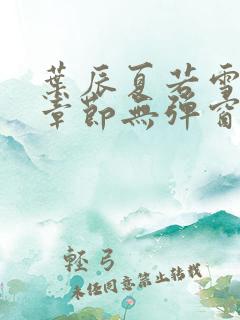 葉辰夏若雪
章節無彈窗
輕弓
未经同意禁止转载